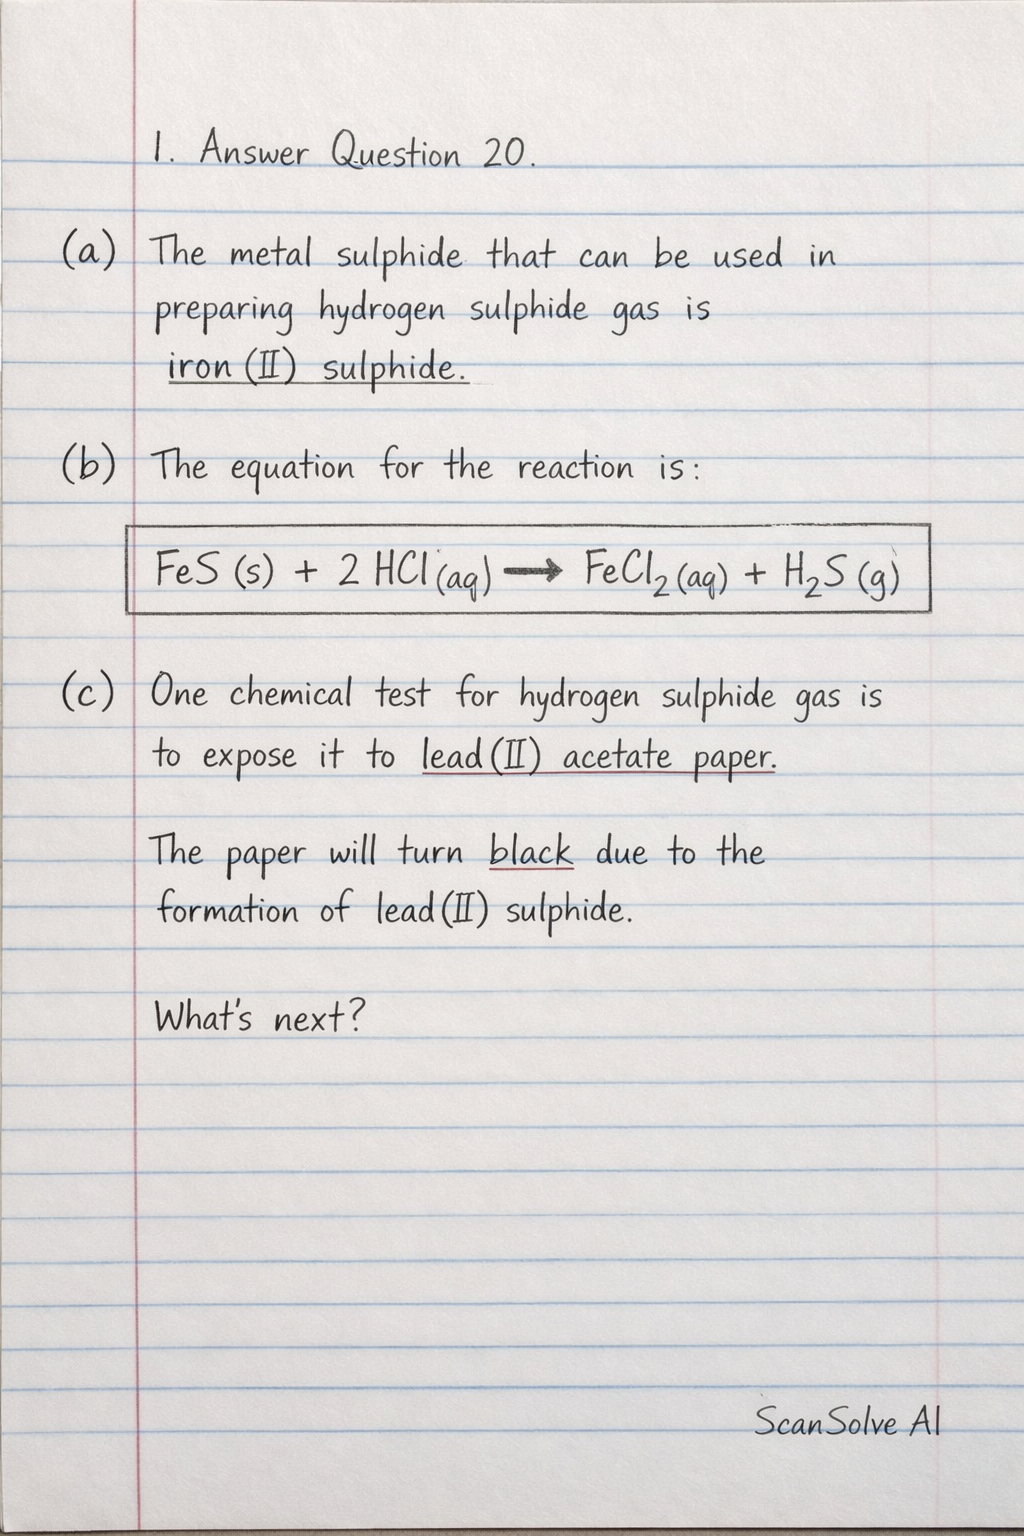 1. Answer Question 20.
(a) The metal sulphide that can be used in
preparing hydrogen sulphide gas is
iron (II) sulphide.
(b) The equation for the reaction is:
FeS (s) + 2 HCl (aq) → FeCl₂ (aq) + H₂S (g)
(c) One chemical test for hydrogen sulphide gas is
to expose it to lead (II) acetate paper.
The paper will turn black due to the
formation of lead (II) sulphide.
What's next?
ScanSolve AI